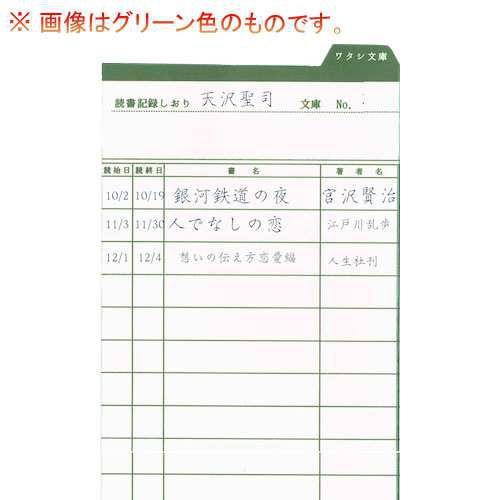 ※ 画像はグリーン色のものです。
ワタシ文庫
読書記録しおり 天沢聖司 文庫 No.
読始日 読終日 書名 著者名
10/2 10/19 銀河鉄道の夜 宮沢賢治
11/3 11/30 人でなしの恋 江戸川乱歩
12/1 12/4 想いの伝え方恋愛編 人生社刊